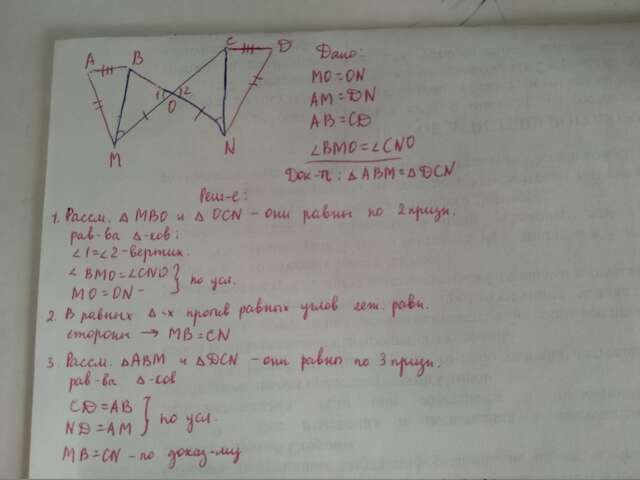 A B C D
1 2
O
M N
Дано:
MO=ON
AM=DN
AB=CD
∠BMO=∠CNO
Док-ть: △ABM=△DCN
Реш-е:
1. Рассм. △MBO и △OCN - они равны по 2 призн.
рав-ва △-ков:
∠1=∠2-вертик.
∠BMO=∠CNO } по усл.
MO=ON-
2. В равных △-х против равных углов леж. равн.
стороны → MB=CN
3. Рассм. △ABM и △DCN - они равны по 3 призн.
рав-ва △-ков
CD=AB } по усл.
ND=AM
MB=CN - по